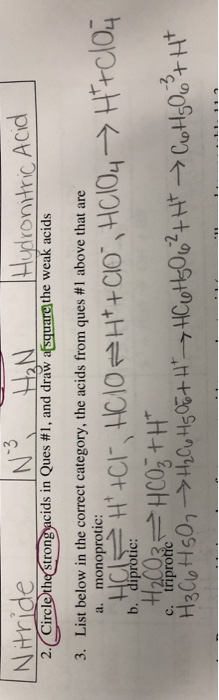 Nitride N⁻³ H₃N Hydronitric Acid
2. Circle the strong acids in Ques #1, and draw a square the weak acids
3. List below in the correct category, the acids from ques #1 above that are
a. monoprotic:
HCl ⇌ H⁺ + Cl⁻, HClO ⇌ H⁺ + ClO⁻, HClO₄ → H⁺ + ClO₄⁻
b. diprotic:
H₂CO₃ ⇌ HCO₃⁻ + H⁺
c. triprotic
H₃C₆H₅O₇ → H₂C₆H₅O₆⁻ + H⁺ → HC₆H₅O₆⁻² + H⁺ → C₆H₅O₆⁻³ + H⁺